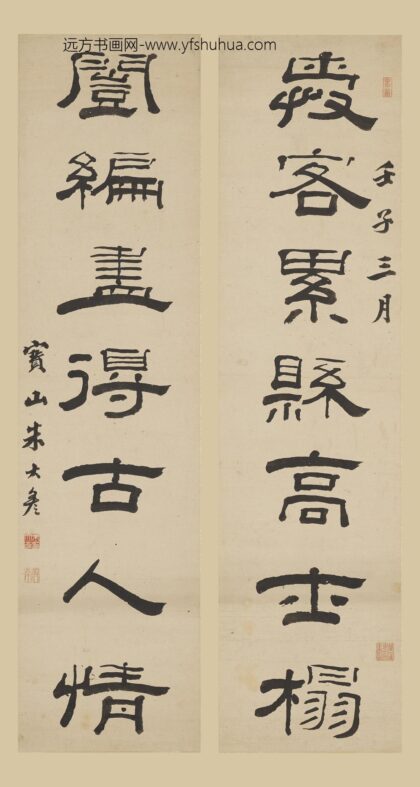 壬子三月
客累縣高士榻
闓編盡得古人情
寶山朱大
远方书画网-www.yfshuhua.com